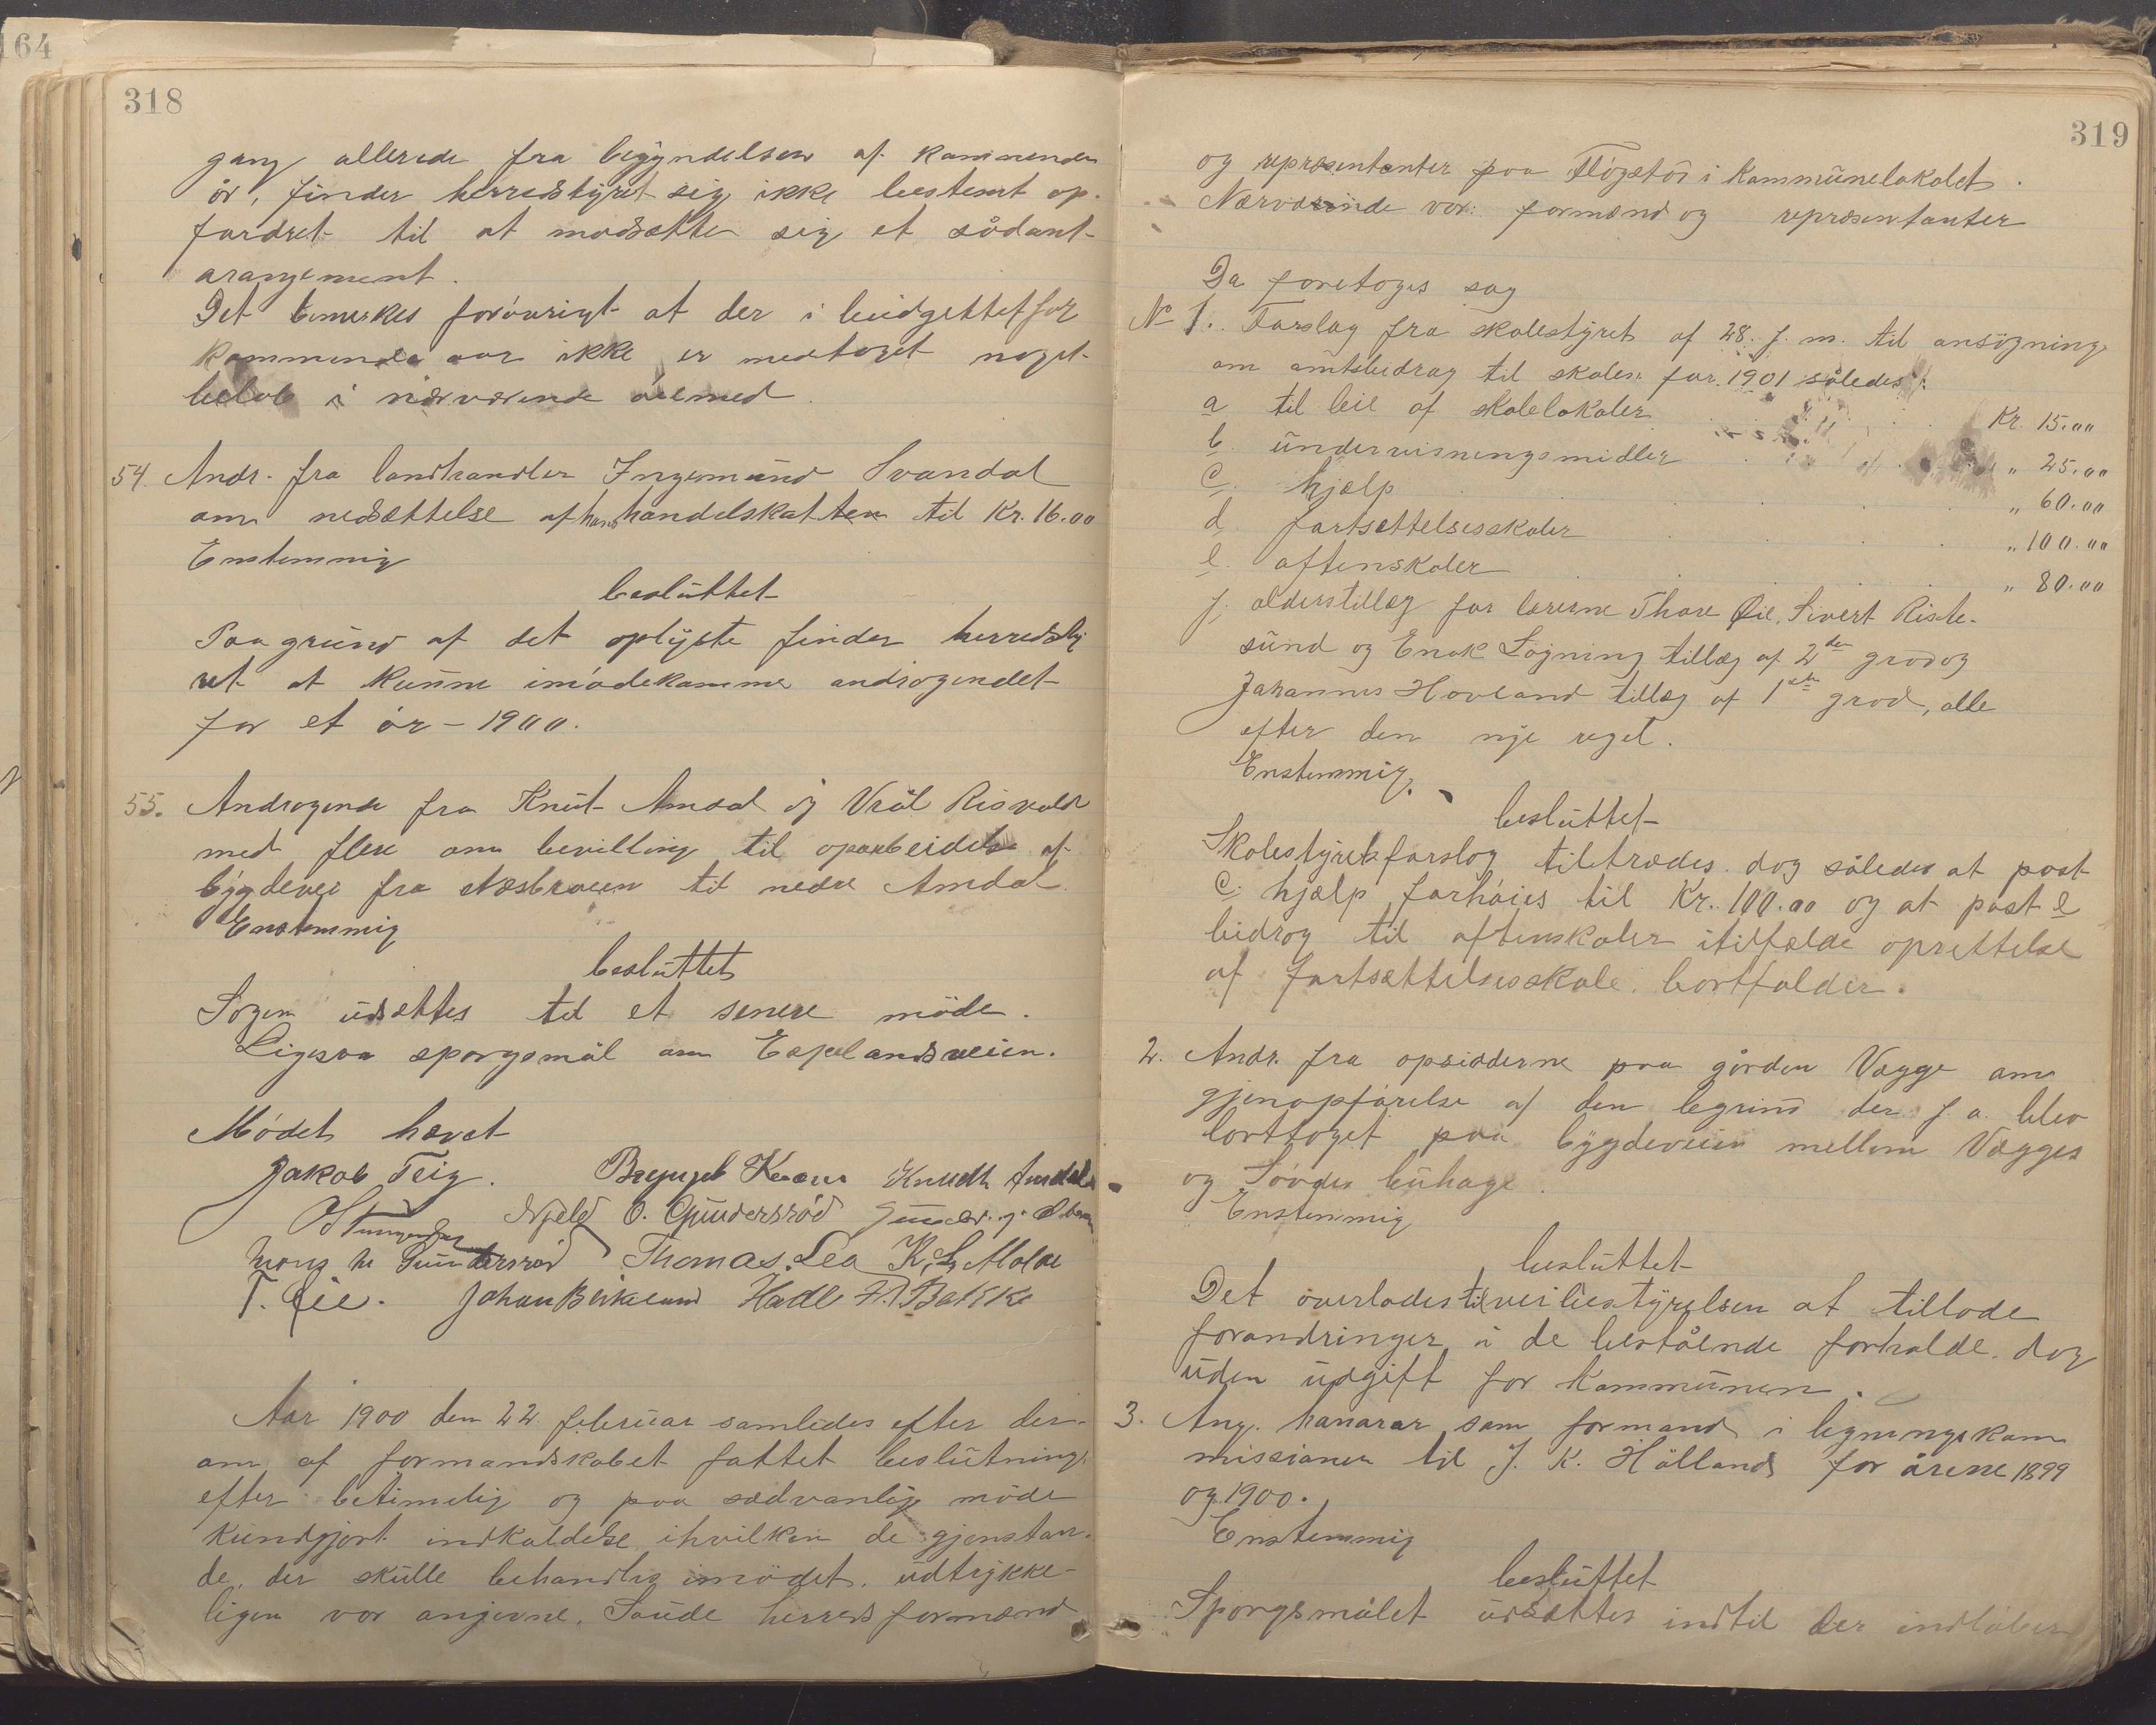 64
318
gang allerede fra begyndelsen af kommende
år, finder herredstyret sig ikke bestemt op-
fordret til at modsætte sig et sådant
arangement.
Det bemerkes forøvrigt at der i budgettet for
kommende aar ikke er medtaget noget
beløb i nærværende øiemed.
54. Andr. fra landhandler Ingemund Svandal
om nedsættelse af hans handelskatten til Kr. 16.00
Enstemmig
besluttet
Paa grund af det oplyste finder herredsty
ret at kunne imødekomme androgendet
for et år - 1900.
55. Androgende fra Knut Amdal og Vräl Risvold
med flere om bevilling til oparbeidelse af
bygdevei fra Næsbroen til nedre Amdal.
Enstemmig
besluttet
Sagen udsættes til et senere möde.
Ligesaa spørgsmål om Espelandsveien.
Mødet hævet
Jakob Teig. Brynjel Knudth Amdal
Njeld O. Gundersrød
Mons M Gundersrød Thomas. Lea K. L. Molde
T. Øie. Johan Birkeland Hadle Bakke
Aar 1900 den 22. februar samledes efter der-
om af formandskabet fattet beslutning,
efter betimelig og paa sædvanlig möde
kundgjort indkaldelse, ihvilken de gjenstan-
de, der skulle behandles imödet, udtrykke-
ligen var angivne, Saude herreds formænd
319
og repræsentanter paa Fløgstöi i Kommunelokalet.
Nærværende var: formænd og repræsentanter
Da foretoges sag
No 1. Forslag fra skolestyret af 28. f. m. til ansögning
om amtsbidrag til skolen for 1901 således:
a til leie af skolelokaler Kr. 15.00
b. undervisningsmidler " 25.00
c. hjælp " 60.00
d fortsettelsesskoler " 100.00
e. aftenskoler " 80.00
f. alderstillæg for lærerne Thore Øie, Sivert Riste-
sund og Enok Løgning tillæg af 2den grad og
Johannes Hoveland tillæg af 1ste grad, alle
efter den nye regel.
Enstemmig.
besluttet
Skolestyrets forslag tiltrædes. dog således at post
c. hjælp forhøies til Kr. 100.00 og at post e
bidrag til aftenskoler itilfælde oprettelse
af fortsættelsesskole. bortfalder.
2. Andr. fra opsidderne paa gården Vægge om
gjenopførelse af den legrind der f. a. blev
borttaget paa bygdeveien mellem Vægges
og Søvdes buhage.
Enstemmig
besluttet
Det overlades til veibestyrelsen at tillade
forandringer i de bestående forholde, dog
uden udgift for Kommunen.
3. Ang. honorar som formand i ligningskom
missionen til J. K. Hölland for årene 1899
og 1900.
Enstemmig
besluttet
Spørgsmålet udsættes indtil der indløber